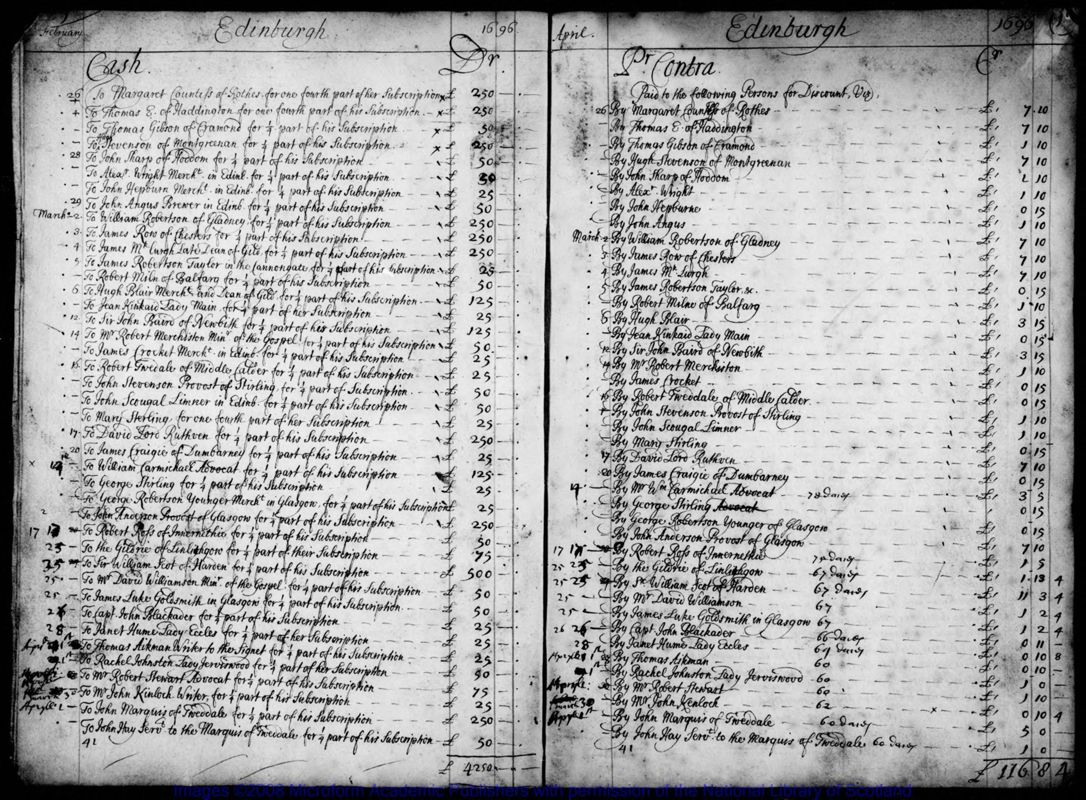 February Edinburgh 1696
Cash. Dr
26 To Margaret Countess of Rothes for one fourth part of her Subscription x £ 250
To Thomas E. of Haddington for one fourth part of his Subscription x £ 250
To Thomas Gibson of Cramond for ¼ part of his Subscription £ 50
To Stevenson of Montgreenan for ¼ part of his Subscription x £ 250
28 To John Sharp of Hoddom for ¼ part of his Subscription £ 50
To Alexr. Wright Mercht. in Edinb. for ¼ part of his Subscription £ 50
To John Hepburn Mercht. in Edinb. for ¼ part of his Subscription £ 25
29 To John Angus Brewer in Edinb. for ¼ part of his Subscription £ 50
March 2 To William Robertson of Gladney for ¼ part of his Subscription £ 250
3 To James Row of Chesters for ¼ part of his Subscription £ 250
4 To James Mc Lurgh Late Dean of Gild for ¼ part of his Subscription £ 250
5 To James Robertson Taylor in the Cannongate for ¼ part of his Subscription £ 25
To Robert Miln of Balfarg for ¼ part of his Subscription £ 50
6 To Hugh Blair Mercht. and Dean of Gild for ¼ part of his Subscription £ 125
To Jean Kinkaid Lady Main for ¼ part of her Subscription £ 25
12 To Sir John Baird of Newbith for ¼ part of his Subscription £ 125
14 To Mr. Robert Merchiston Minr. of the Gospel for ¼ part of his Subscription £ 50
To James Crocket Mercht. in Edinb. for ¼ part of his Subscription £ 25
To Robert Twedale of Middle Calder for ¼ part of his Subscription £ 25
To John Stevenson Provost of Stirling for ¼ part of his Subscription £ 50
To John Scougal Limner in Edinb. for ¼ part of his Subscription £ 50
To Mary Sterling for one fourth part of her Subscription £ 25
17 To David Lord Ruthven for ¼ part of his Subscription £ 250
20 To James Craigie of Dumbarney for ¼ part of his Subscription £ 25
To William Carmichael Advocat for ¼ part of his Subscription £ 125
To George Stirling for ¼ part of his Subscription £ 25
To George Robertson Younger Mercht. in Glasgow for ¼ part of his Subscription £ 25
To John Anderson Provost of Glasgow for ¼ part of his Subscription £ 250
17 To Robert Ross of Innernethie for ¼ part of his Subscription £ 50
25 To the Gildrie of Linlithgow for ¼ part of their Subscription £ 75
25 To Sir William Scot of Harden for ¼ part of his Subscription £ 500
25 To Mr. David Williamson Minr. of the Gospel for ¼ part of his Subscription £ 50
To James Luke Goldsmith in Glasgow for ¼ part of his Subscription £ 50
26 To Capt. John Blackader for ¼ part of his Subscription £ 25
28 To Janet Hume Lady Eccles for ¼ part of her Subscription £ 25
To Thomas Aikman Writer to the Signet for ¼ part of his Subscription £ 25
To Rachel Johnston Lady Jerviswood for ¼ part of her Subscription £ 50
To Mr. Robert Stewart Advocat for ¼ part of his Subscription £ 75
To Mr. John Kinloch Writer, for ¼ part of his Subscription £ 25
Apryll 1 To John Marquis of Tweddale for ¼ part of his Subscription £ 250
To John Hay Servt. to the Marquis of Tweddale for ¼ part of his Subscription £ 50
41
£ 4250
April. Edinburgh 1696
Pr Contra. Cr
Paid to the following Persons for Discount, Viz,
26 By Margaret Countess of Rothes £ 7 10
By Thomas E. of Haddington £ 7 10
By Thomas Gibson of Cramond £ 1 10
By Hugh Stevenson of Montgreenan £ 7 10
By John Sharp of Hoddom £ 1 10
By Alexr. Wright £ 1 10
By John Hepburne £ 0 15
By John Angus £ 1 10
March 2 By William Robertson of Gladney £ 7 10
3 By James Row of Chesters £ 7 10
4 By James Mc Lurgh £ 7 10
5 By James Robertson Taylor &c. £ 0 15
By Robert Milne of Balfarg £ 1 10
6 By Hugh Blair £ 3 15
By Jean Kinkaid Lady Main £ 0 15
12 By Sir John Baird of Newbith £ 3 15
14 By Mr. Robert Merchiston £ 1 10
By James Crocket £ 0 15
By Robert Tweddale of Middle Calder £ 0 15
By John Stevenson Provost of Stirling £ 1 10
By John Scougal Limner £ 1 10
By Mary Stirling £ 0 15
17 By David Lord Ruthven £ 7 10
20 By James Craigie of Dumbarney £ 0 15
14 By Mr. Wm. Carmichael Advocat 78 dayes £ 3 5
By George Stirling Advocat £ 0 15
By George Robertson Younger of Glasgow £ 0 15
By John Anderson Provost of Glasgow £ 7 10
17 By Robert Ross of Innernethie 75 dayes £ 1 5
25 By the Gildrie of Linlithgow 67 dayes £ 1 13 4
25 By Sr. William Scot of Harden 67 dayes £ 11 3 4
25 By Mr. David Williamson 67 £ 1 2 4
By James Luke Goldsmith in Glasgow 67 £ 1 2 4
26 By Capt. John Blackader 66 dayes £ 0 11
28 By Janet Hume Lady Eccles 64 dayes £ 0 10 8
By Thomas Aikman 60 £ 0 10
By Rachel Johnston Lady Jerviswood 60 £ 1 0
By Mr. Robert Stewart 60 £ 1 10
By Mr. John Kenloch 62 £ 0 10 4
Apryll 1 By John Marquis of Tweddale 60 dayes £ 5 0
By John Hay Servt. to the Marquis of Tweddale 60 dayes £ 1 0
41
£ 116 8 4
images ©2008 Microform Academic Publishers with permission of the National Library of Scotland